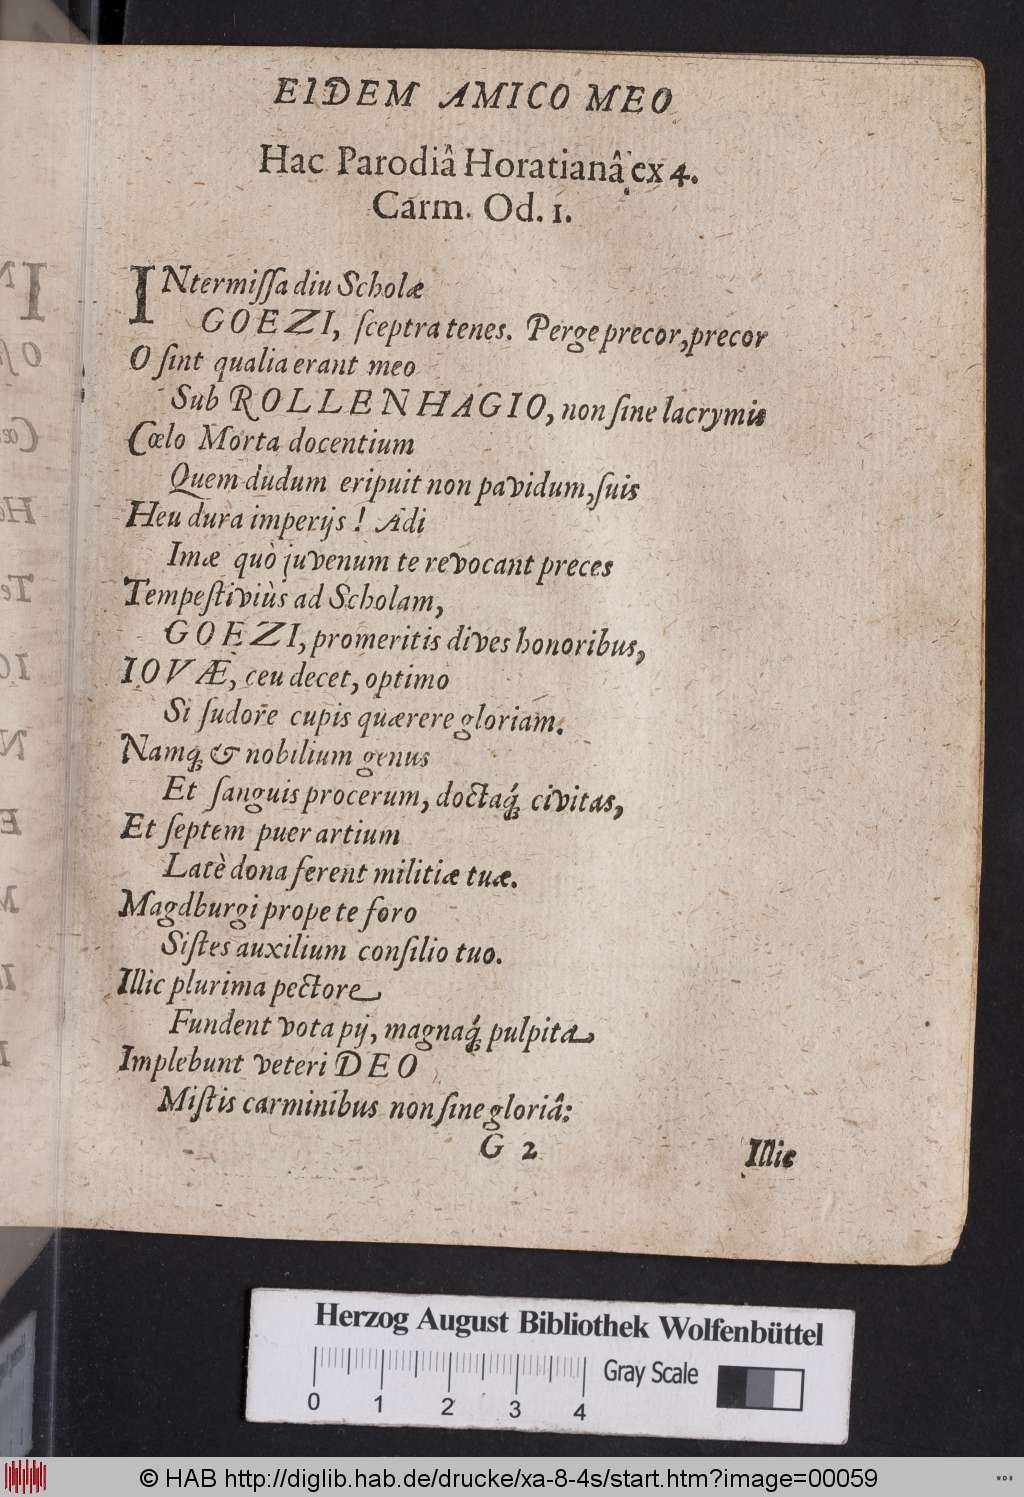 EIDEM AMICO MEO
Hac Parodiâ Horatianâ ex 4.
Carm. Od. 1.
INtermiſſa diu Scholæ
GOEZI, ſceptra tenes. Perge precor, precor
O ſint qualia erant meo
Sub ROLLENHAGIO, non ſine lacrymis
Cœlo Morta docentium
Quem dudum eripuit non pavidum, ſuis
Heu dura imperijs ! Adi
Imæ quò juvenum te revocant preces
Tempeſtiviùs ad Scholam,
GOEZI, promeritis dives honoribus,
IOVÆ, ceu decet, optimo
Si ſudore cupis quærere gloriam.
Namq́; & nobilium genus
Et ſanguis procerum, doctaq́; civitas,
Et ſeptem puer artium
Latè dona ferent militiæ tuæ.
Magdburgi prope te foro
Siſtes auxilium conſilio tuo.
Illic plurima pectore
Fundent vota pij, magnaq́; pulpita
Implebunt veteri DEO
Miſtis carminibus non ſine gloriâ:
G 2
Illic
Herzog August Bibliothek Wolfenbüttel
Gray Scale
0 1 2 3 4
© HAB http://diglib.hab.de/drucke/xa-8-4s/start.htm?image=00059